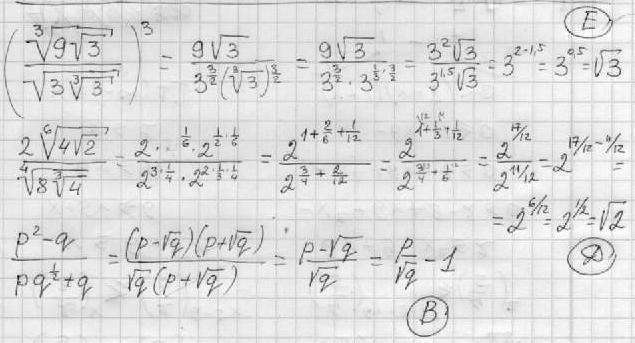 E
(∛(9√3) / √(3∛3))³ = 9√3 / (3^(3/2) (∛3)^(3/2)) = 9√3 / (3^(3/2) · 3^(1/3 · 3/2)) = 3²√3 / (3^(1,5) √3) = 3^(2-1,5) = 3^(0,5) = √3
2 ⁶√(4√2) / ⁴√(8∛4) = 2 · ^(1/6) · 2^(1/2 · 1/6) / (2^(3 · 1/4) · 2^(2 · 1/3 · 1/4)) = 2^(1 + 2/6 + 1/12) / 2^(3/4 + 2/12) = 2^(1 + 1/3 + 1/12) / 2^(3/4 + 1/6) = 2^(17/12) / 2^(11/12) = 2^(17/12 - 11/12) =
= 2^(6/12) = 2^(1/2) = √2
(p² - q) / (pq^(1/2) + q) = (p - √q)(p + √q) / (√q (p + √q)) = (p - √q) / √q = p/√q - 1
D
B